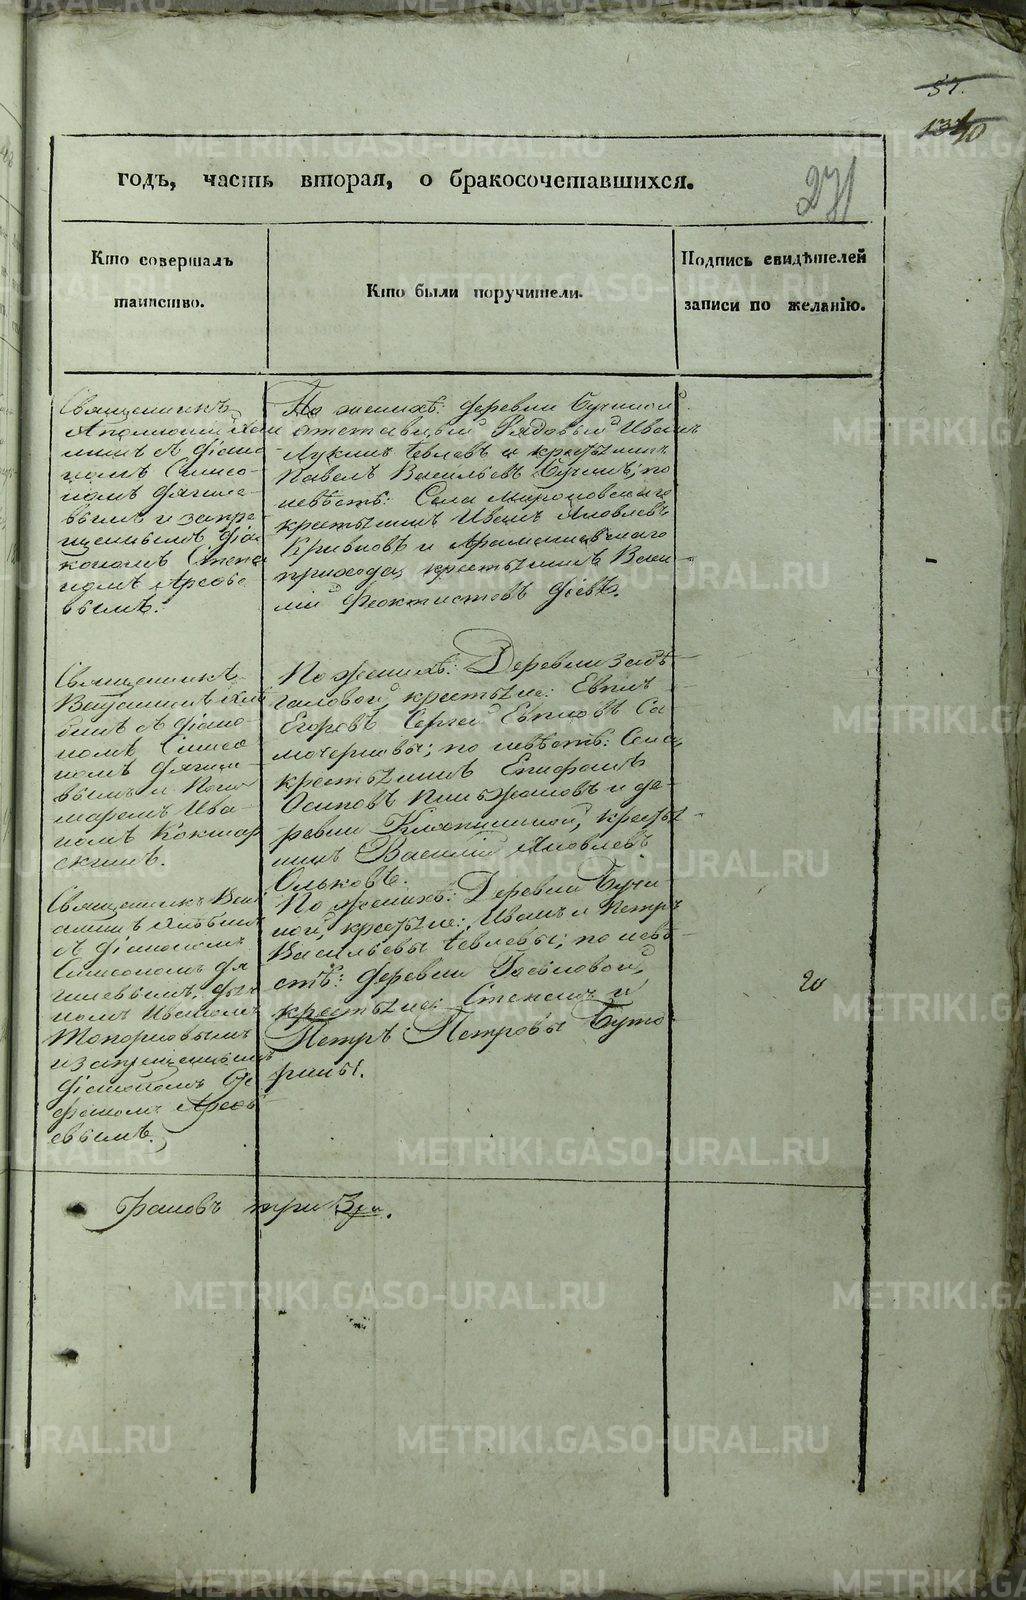 57.
годъ, часть вторая, о бракосочетавшихся.
271
Кто совершалъ
таинство.
Кто были поручители.
Подпись свидѣтелей
записи по желанію.
Священникъ
линъ съ діако
номъ Симео-
номъ Фягиле-
вымъ и запре-
щеннымъ діа
кономъ Стефа
номъ Арефье
вымъ.
По женихѣ: деревни Бучиной
отставный Рядовый Иванъ
Лукинъ Евлевъ и крестьянинъ
Павелъ Васильевъ Бучинъ; по
невѣстѣ: Села Мироновскаго
крестьянинъ Иванъ Яковлевъ
Кривыхъ и Арамашевскаго
прихода, крестьянинъ Васи-
лій Феоктистовъ
Священникъ
съ діако-
номъ Симео
номъ Фягиле
вымъ и Поно
маремъ Ива-
номъ Кокшар
скимъ.
По женихѣ: Деревни
крестьяне: Евплъ
Егоровъ Сергей Евпловъ Са
мочерновы; по невѣстѣ: Села,
крестьянинъ Епифанъ
Осиповъ и де-
ревни крестья
нинъ Василій Яковлевъ
Ольковъ.
Священникъ Вені
аминъ
съ діакономъ
Симеономъ Фя
гилевымъ, дья
комъ Иваномъ
Топорковымъ
и запрещеннымъ
діакономъ Сте
фаномъ Арефь
евымъ.
По женихѣ: Деревни Бучи
ной, крестьяне: Иванъ и Петръ
Васильевы Евлевы; по невѣ-
стѣ: деревни
крестьяне: Степанъ и
Петръ Петровы Буто
рины.
20
Браковъ три 3ри.
METRIKI.GASO-URAL.RU